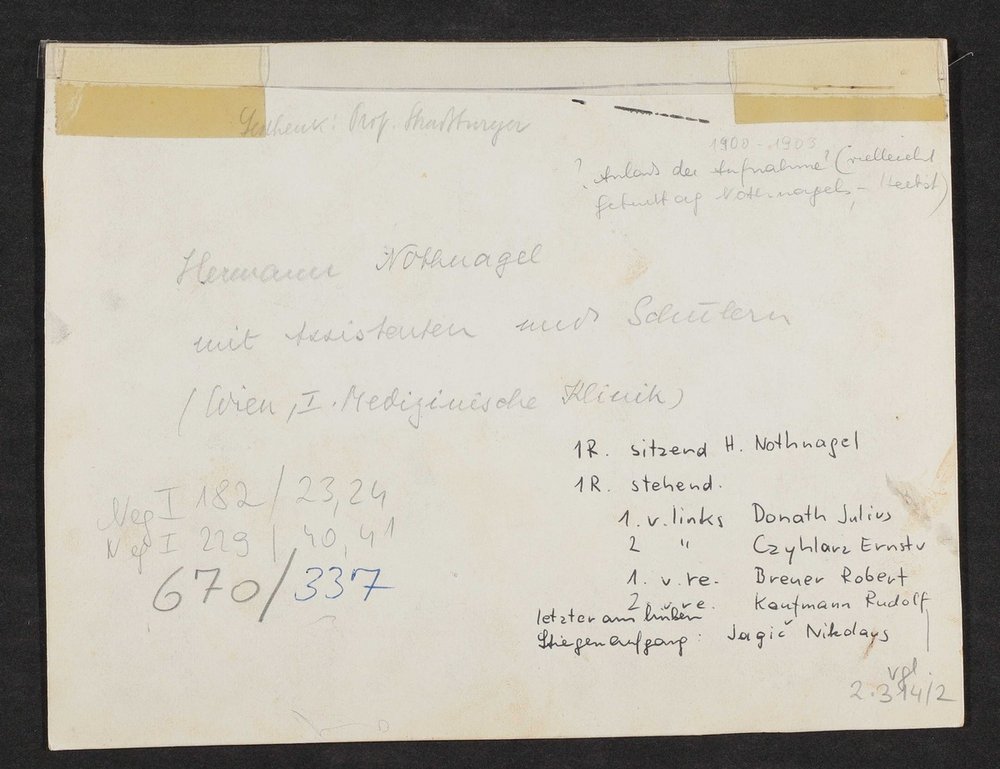 Geschenk: Prof. Straßburger
1900 - 1903
? Anlass der Aufnahme? (vielleicht
Geburtstag Nothnagels, - Herbst)
Hermann Nothnagel
mit Assistenten und Schülern
(Wien, I. Medizinische Klinik)
1R. sitzend H. Nothnagel
1R. stehend.
1. v. links Donath Julius
2 " Czyhlarz Ernst v
1. v. re. Breuer Robert
2. v. re. Kaufmann Rudolf
letzter am linken
Stiegenaufgang: Jagič Nikolaus
Neg I 182 / 23, 24
Neg I 229 / 40, 41
670/337
vgl.
2.314/2